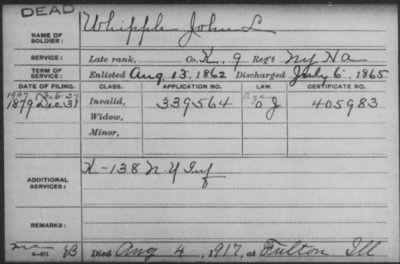 DEAD
NAME OF SOLDIER: Whipple John L
SERVICE: Late rank, Co. K, 9 Reg't NY HA
TERM OF SERVICE: Enlisted Aug 13, 1862 Discharged July 6, 1865
DATE OF FILING. CLASS. APPLICATION NO. LAW. CERTIFICATE NO.
1907 Feb 27 Age
1879 Dec 31 Invalid, 339564 O J 405983
Widow,
Minor,
ADDITIONAL SERVICES: K-138 N.Y Inf
REMARKS:
Died Aug 4, 1917, at Fulton Ill